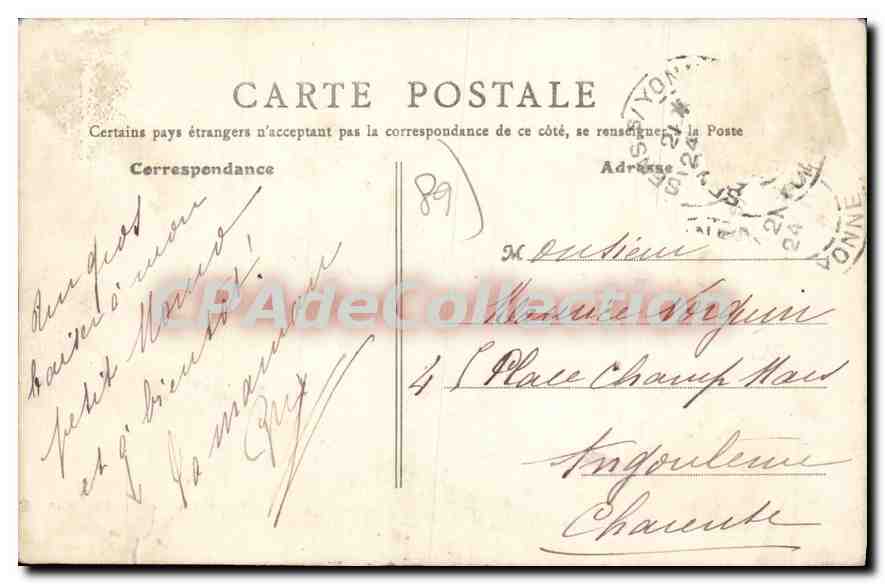 CARTE POSTALE
Certains pays étrangers n'acceptent pas la correspondance de ce côté, se renseigner à la Poste
Correspondance
Adresse
89
Un gros
baiser à mon
petit Momo
et à bientôt!
Ta maman
Monsieur
Maurice
4 Place Champ Mars
Angoulême
Charente
CPAdeCollection
YONNE
21
24
YONNE
24